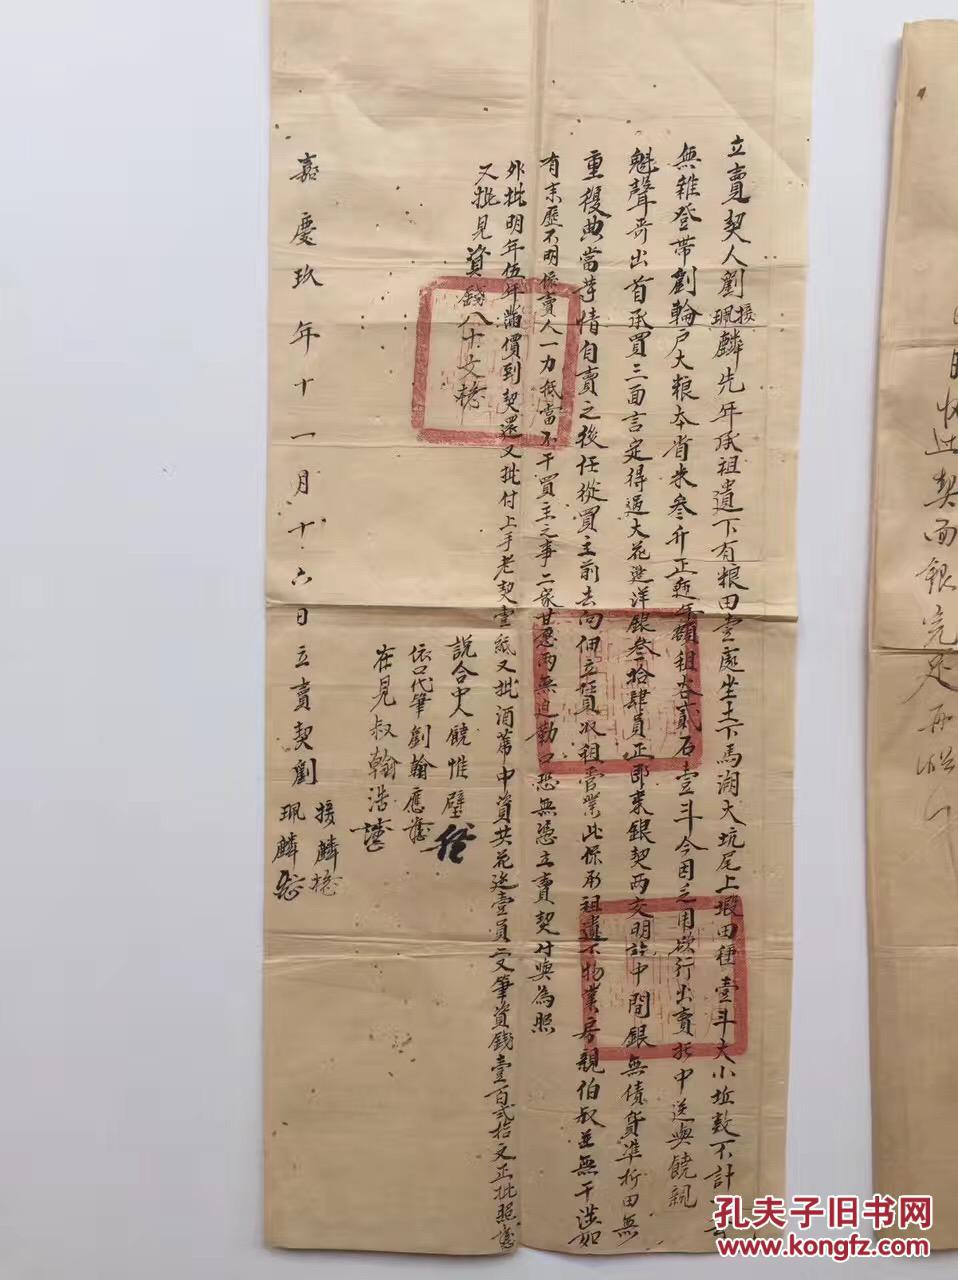 立賣契人劉援珮麟先年承祖遺下有粮田壹處坐土下馬湖大坑尾上塅田種壹斗大小坵數不計
無雜登帶劉輪戶大粮本省米叁升正遞年額租谷貳石壹斗今因乏用欲行出賣托中送與饒親
魁聲哥出首承買三面言定得過大花邊洋銀叁拾肆員正即來銀契两交明訖中間銀無債貨準折田無
重複典當等情自賣之後任從買主前去向佃立耳收租管業此係承祖遺下物業房親伯叔並無干涉如
有來歷不明係賣人一力抵當不干買主之事二家甘愿两無迫勒口恐無憑立賣契付與為照
外批明年伍年滿價到契還又批付上手老契壹紙又批酒蓆中資共花边壹員二又筆資錢壹百貳拾文正批照
又批見資錢八十文
說合中人饒惟璧
依口代筆劉翰應
在見叔翰浩
嘉慶玖年十一月十六日立賣契劉
援麟
珮麟
契面銀完足再
孔夫子旧书网
www.kongfz.com